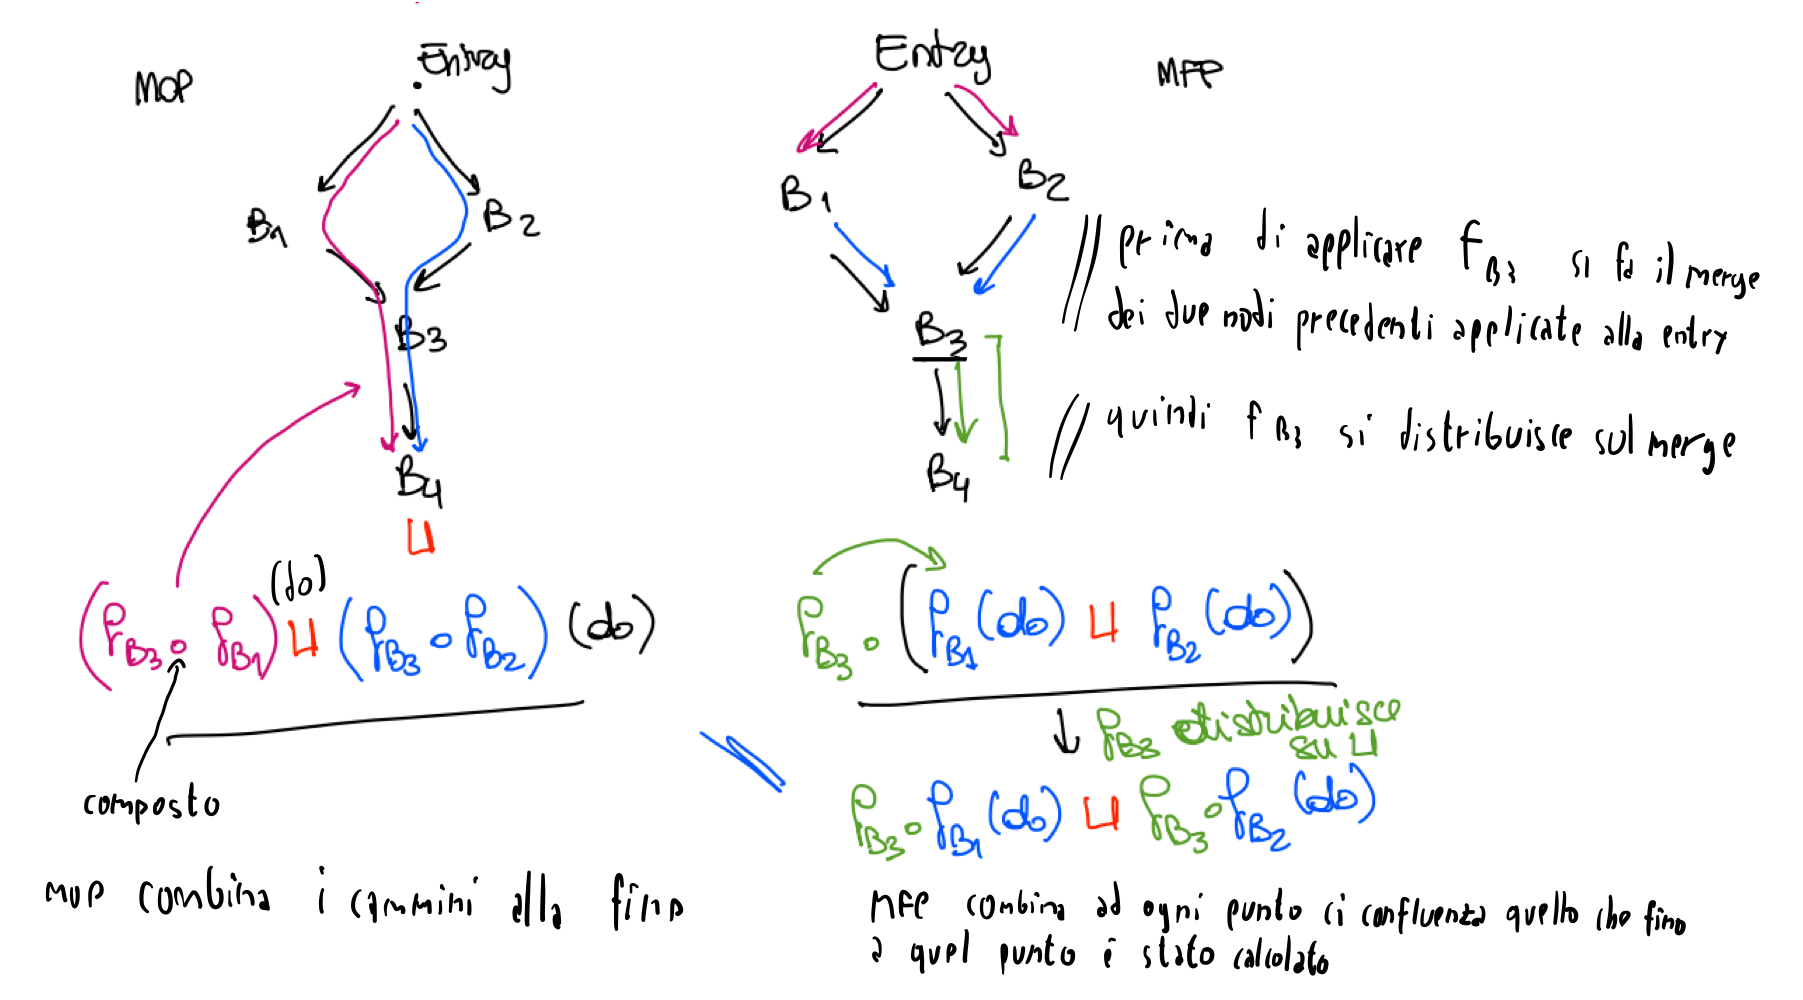 MOP
Entry
B1
B2
B3
B4
⊔
(fB3 ∘ fB1) (do) ⊔ (fB3 ∘ fB2) (do)
composto
MOP combina i cammini alla fine
Entry
MFP
B1
B2
B3
B4
// prima di applicare fB3 si fa il merge
dei due nodi precedenti applicate alla entry
// quindi fB3 si distribuisce sul merge
fB3 ∘ (fB1 (do) ⊔ fB2 (do))
↓ fB3 distribuisce
su ⊔
fB3 ∘ fB1 (do) ⊔ fB3 ∘ fB2 (do)
MFP combina ad ogni punto ci confluenza quello che fino
a quel punto è stato calcolato